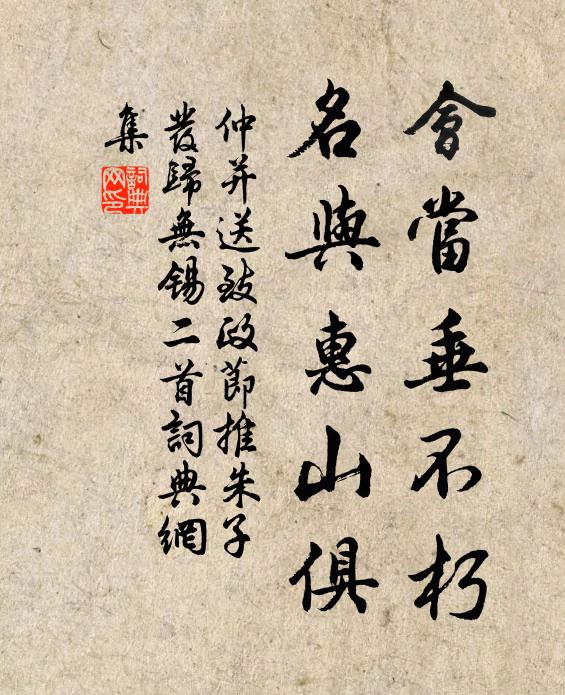 會當垂不朽
名與惠山俱
仲并送致政節推朱子
發歸無錫二首詞典網
集
詞典網印